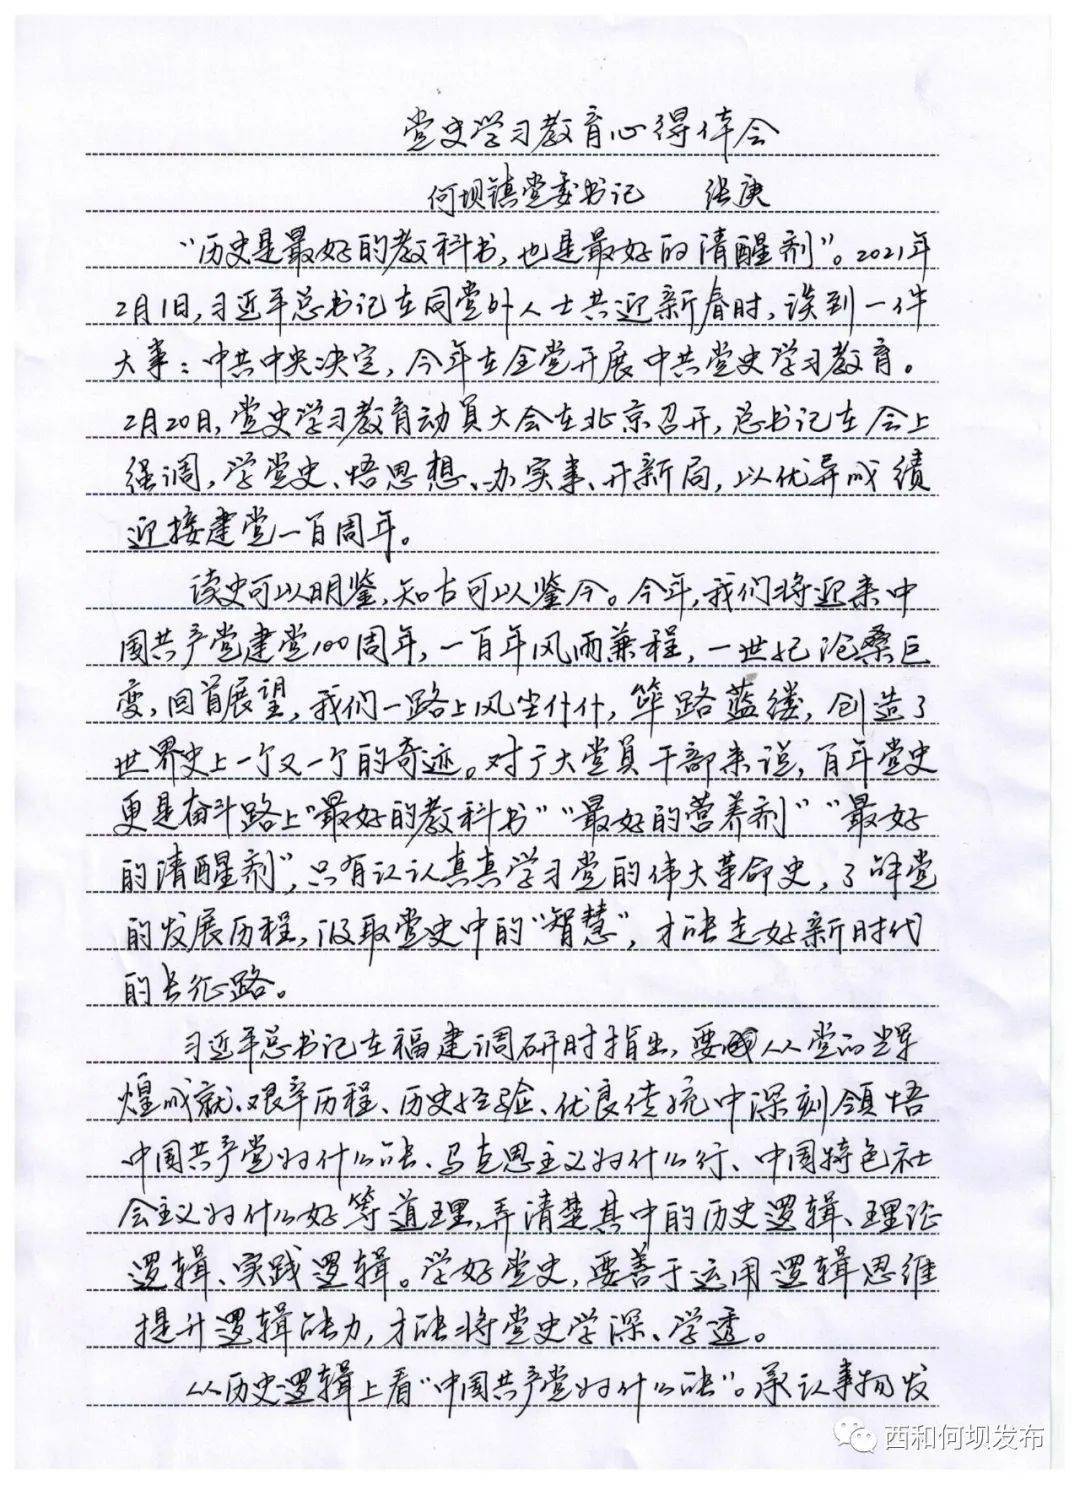 党史学习教育心得体会
何坝镇党委书记 张庚
“历史是最好的教科书,也是最好的清醒剂”。2021年
2月1日,习近平总书记在同党外人士共迎新春时,谈到一件
大事:中共中央决定,今年在全党开展中共党史学习教育。
2月20日,党史学习教育动员大会在北京召开,总书记在会上
强调,学党史、悟思想、办实事、开新局,以优异成绩
迎接建党一百周年。
读史可以明鉴,知古可以鉴今。今年,我们将迎来中
国共产党建党100周年,一百年风雨兼程,一世纪沧桑巨
变,回首展望,我们一路上风尘什什,筚路蓝缕,创造了
世界史上一个又一个的奇迹。对于大党员干部来说,百年党史
更是奋斗路上“最好的教科书”“最好的营养剂”“最好
的清醒剂”,只有认认真真学习党的伟大革命史,了解党
的发展历程,汲取党史中的“智慧”,才能走好新时代
的长征路。
习近平总书记在福建调研时指出,要从党的辉
煌成就、艰辛历程、历史经验、优良传统中深刻领悟
中国共产党为什么能、马克思主义为什么行、中国特色社
会主义为什么好等道理,弄清楚其中的历史逻辑、理论
逻辑、实践逻辑。学好党史,要善于运用逻辑思维
提升逻辑能力,才能将党史学深、学透。
从历史逻辑上看“中国共产党为什么能”。承认事物发
西和何坝发布